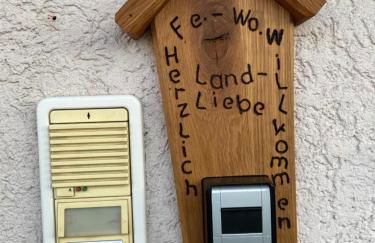 Fe.-Wo.
Herzlich
Willkommen
Land-
Liebe